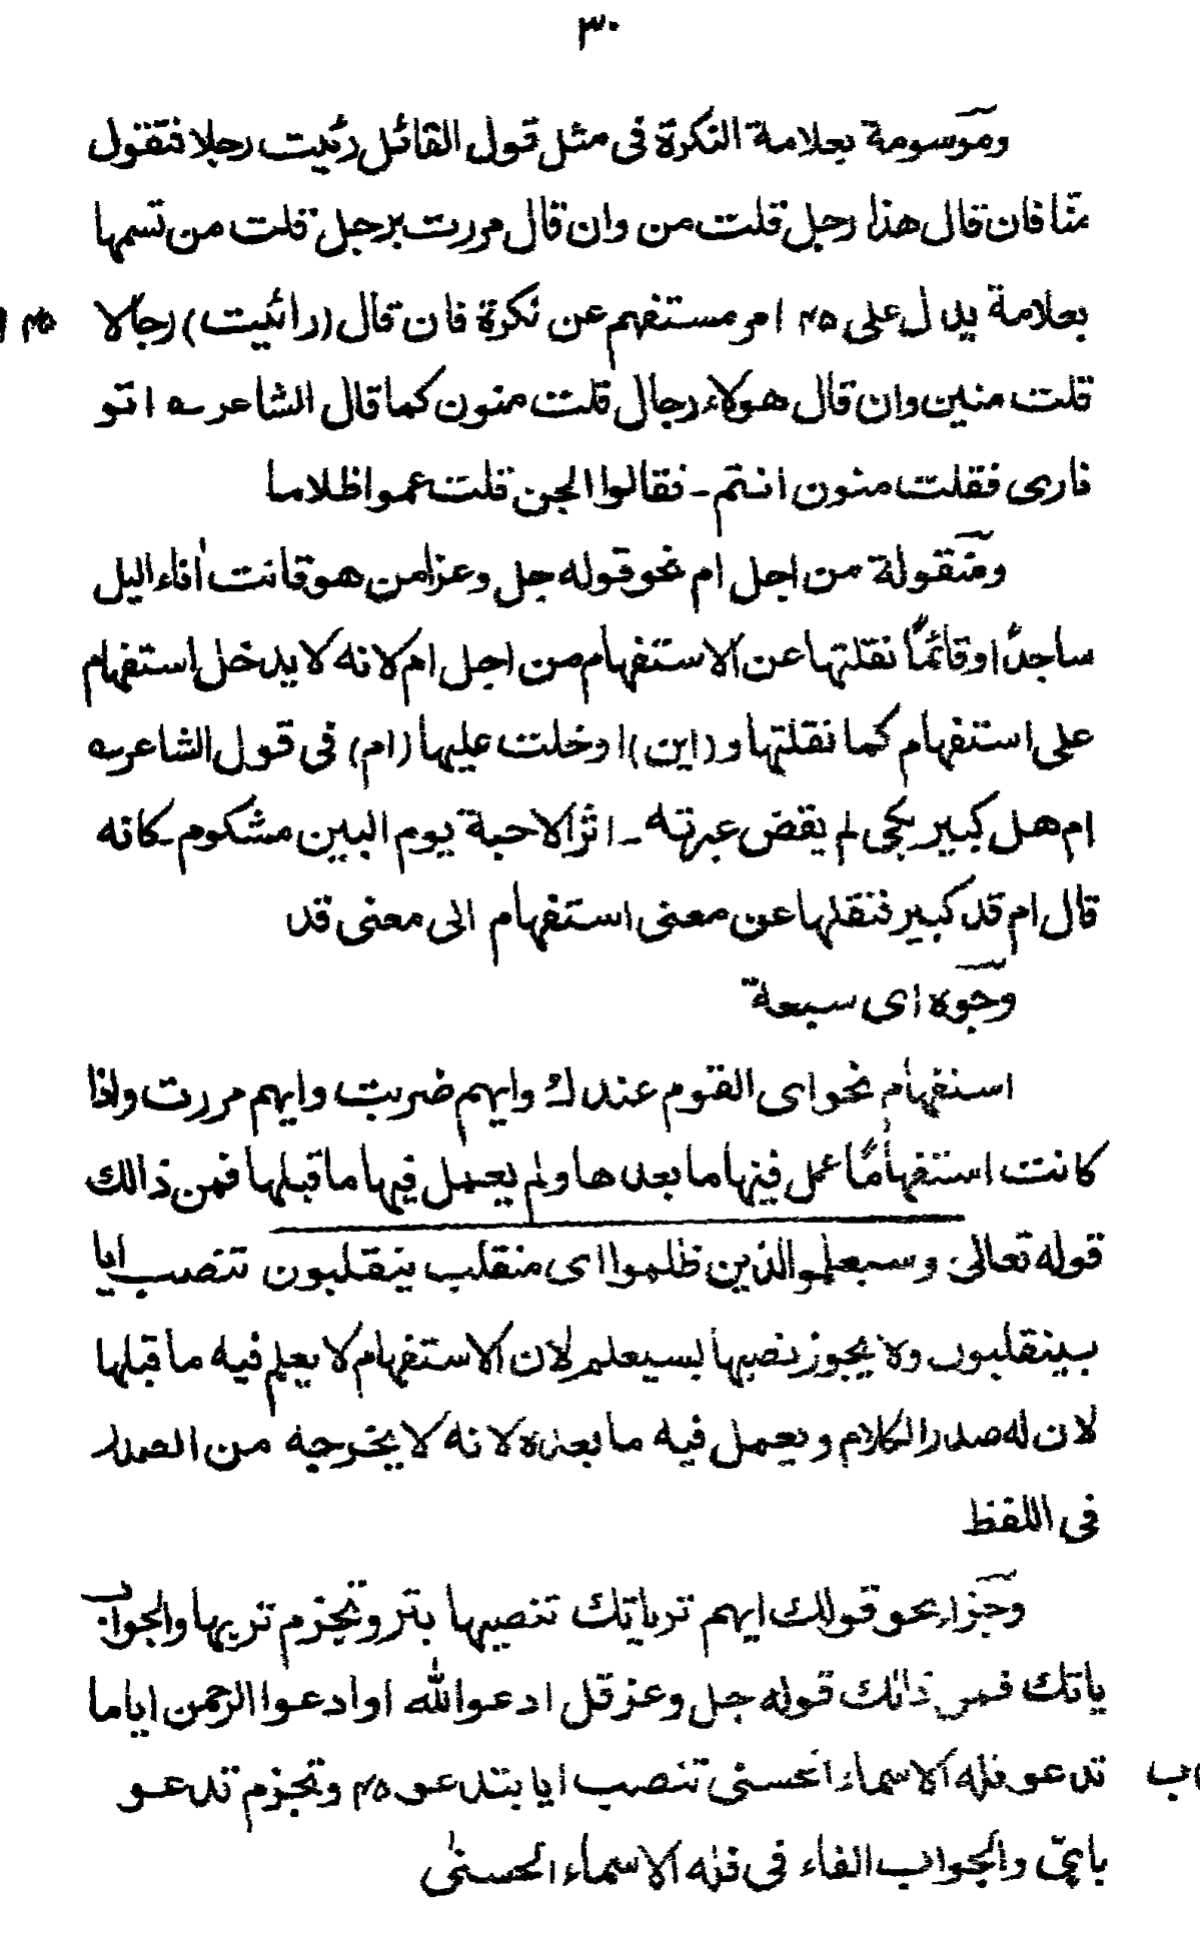 ٣٠
وموسومة بعلامة النكرة فى مثل قول القائل رئيت رجلا فتقول
منا فان قال هذا رجل قلت من وان قال مررت برجل قلت من تسمها
بعلامة يدل على ٤٥ امر مستفهم عن نكرة فان قال (رائيت) رجالا
قلت منين وان قال هولاء رجال قلت منون كما قال الشاعر ؎ اتو
نارى فقلت منون انتم ـ فقالوا الجن قلت عموا ظلاما
ومنقولة من اجل ام نحو قوله جل وعز امن هو قانت اٰناء اليل
ساجدًا او قائمًا نقلتها عن الاستفهام من اجل ام لانه لا يدخل استفهام
على استفهام كما نقلتها و (اين) ادخلت عليها (ام) فى قول الشاعر ؎
ام هل كبير بكى لم يقض عبرته ـ اثر الاحبة يوم البين مشكوم ـ كانه
قال ام قد كبير فنقلها عن معنى استفهام الى معنى قد
وجوه اى سبعة
استفهام نحو اى القوم عندك وايهم ضربت وايهم مررت واذا
كانت استفهامًا عمل فيها ما بعدها ولم يعمل فيها ما قبلها فمن ذالك
قوله تعالى وسيعلمو الذين ظلموا اى منقلب ينقلبون تنصب ايا
بينقلبون ولا يجوز نصبها بسيعلم لان الاستفهام لا يعلم فيه ما قبلها
لان له صدر الكلام ويعمل فيه ما بعده لانه لا يخرجه من الصدر
فى اللفظ
وجزاء نحو قولك ايهم تر ياتك تنصبها بتر وتجزم تر بها والجواب
ياتك فمن ذالك قوله جل وعز قل ادعوا الله او ادعوا الرحمن اياما
تدعو فله الاسماء الحسنى تنصب ايا بتدعو ٤٥ وتجزم تدعو
باىّ والجواب الفاء فى فله الاسماء الحسنىٰ